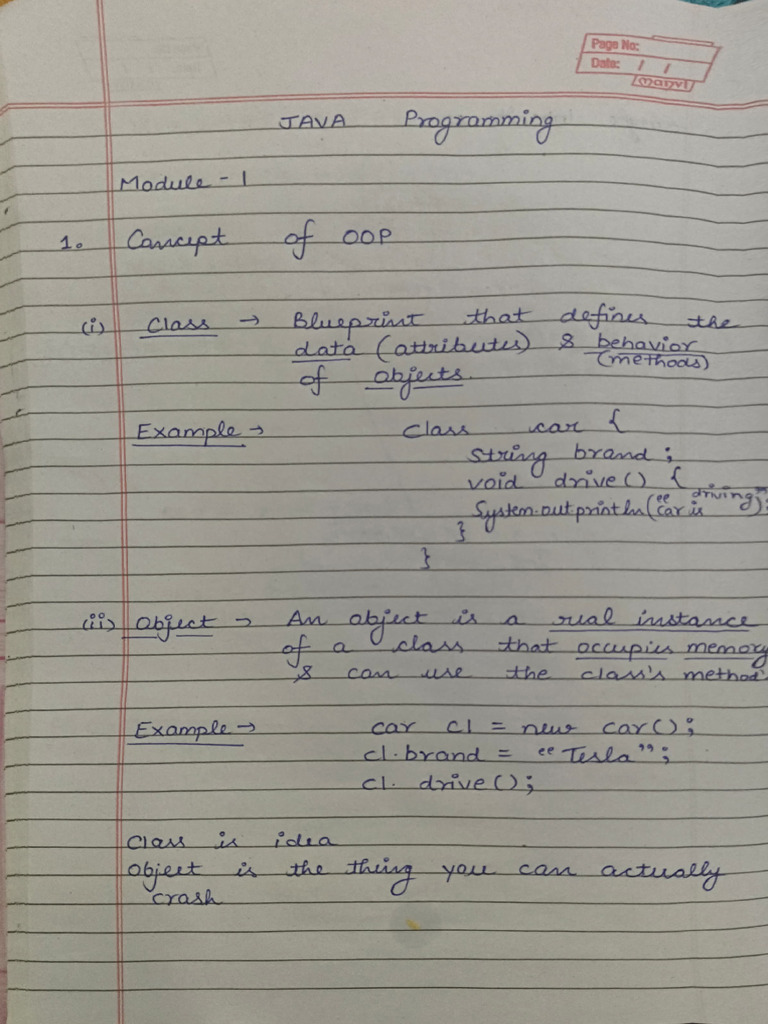 Page No:
Date: / /
manvi
JAVA Programming
Module - 1
1. Concept of OOP
(i) Class → Blueprint that defines the
data (attributes) & behavior
(methods)
of objects.
Example → class car {
String brand ;
void drive () {
System.out println ("car is driving");
}
}
(ii) Object → An object is a real instance
of a class that occupies memory
& can use the class's method
Example → car c1 = new car();
c1.brand = "Tesla";
c1. drive ();
class is idea
object is the thing you can actually
crash